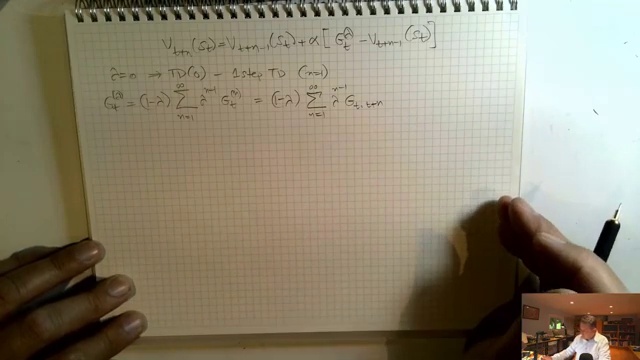 V_{t+n}(S_t) = V_{t+n-1}(S_t) + α[G_t^λ - V_{t+n-1}(S_t)]
λ=0 ⇒ TD(0) - 1 step TD (n=1)
G_t^{(λ)} = (1-λ) ∑_{n=1}^{∞} λ^{n-1} G_t^{(n)} = (1-λ) ∑_{n=1}^{∞} λ^{n-1} G_{t,t+n}